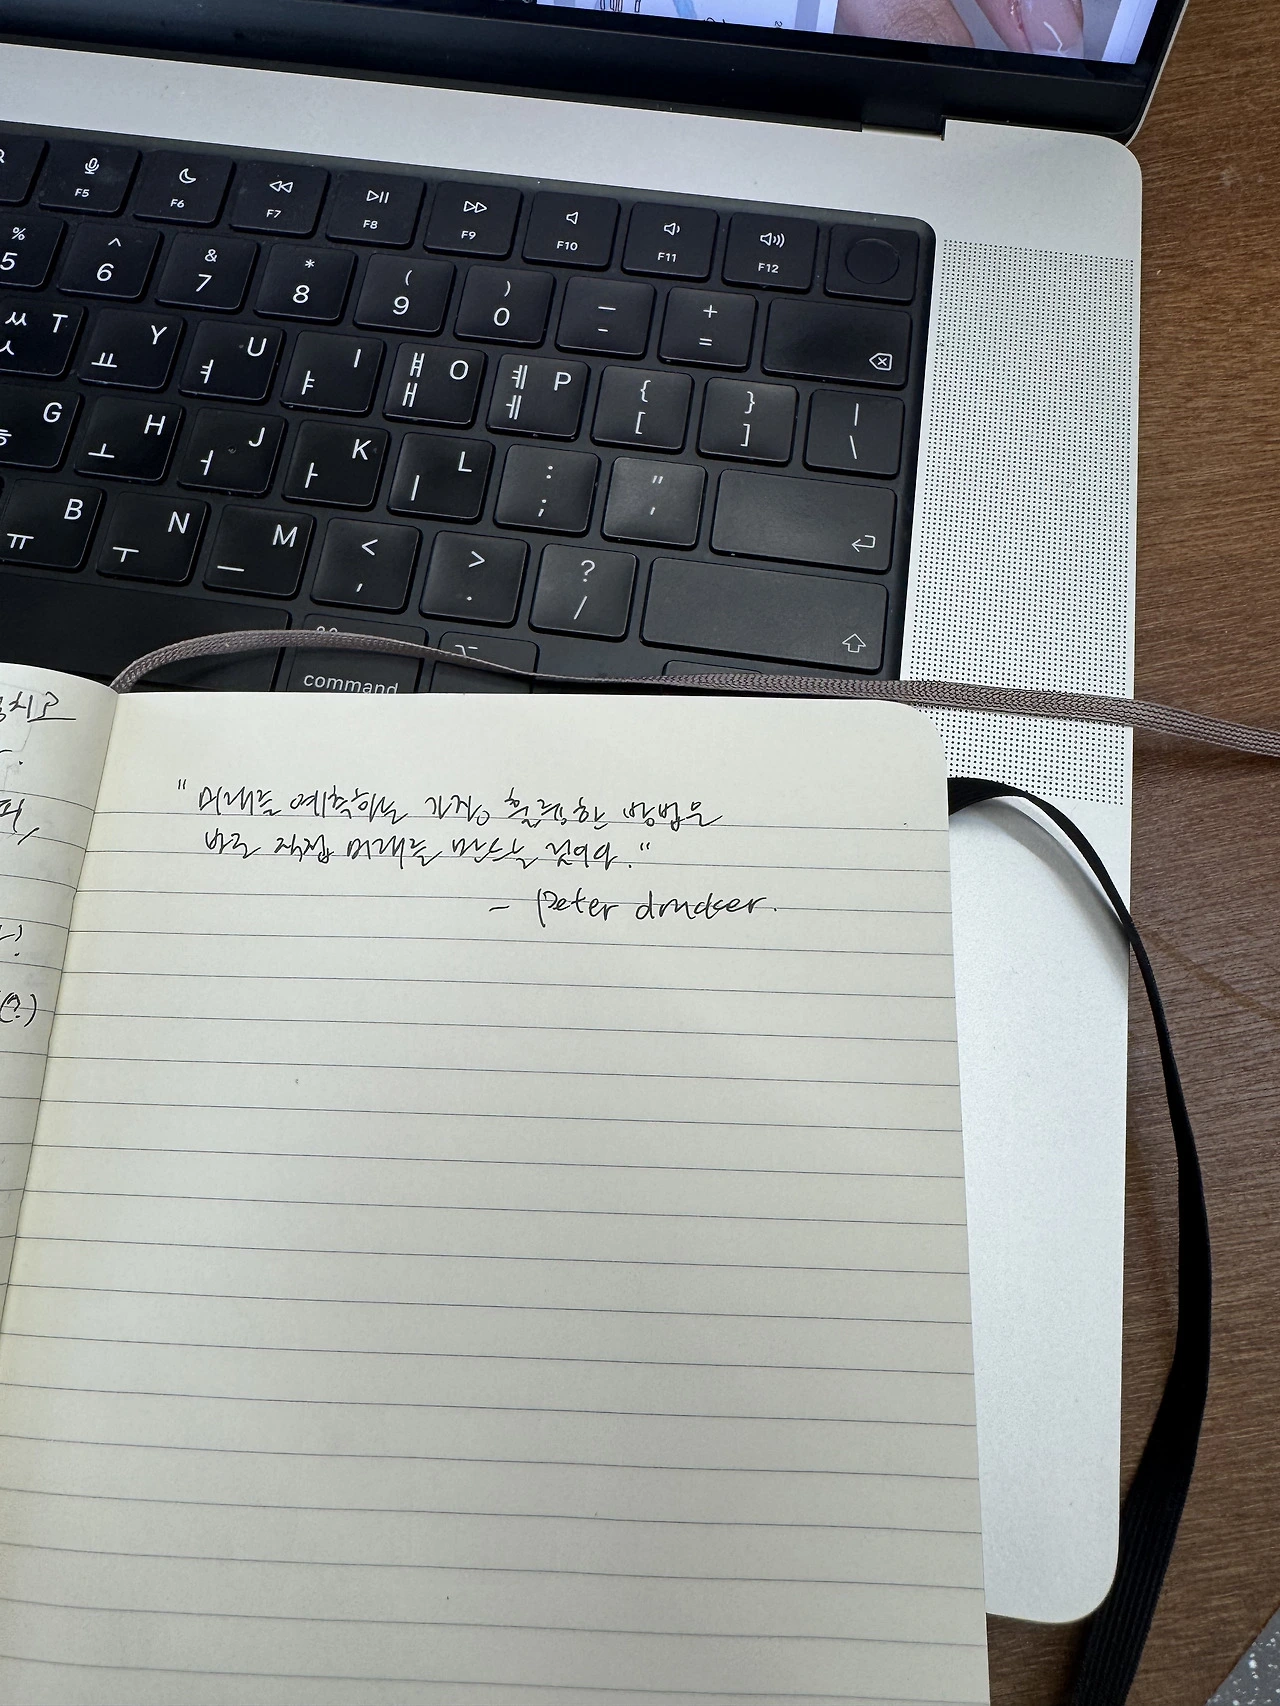 F5 F6 F7 F8 F9 F10 F11 F12
% 5 ^ 6 & 7 * 8 ( 9 ) 0 — - + =
ㅆ T ㅅ Y ㅛ U ㅕ I ㅑ ㅒ O ㅐ ㅖ P ㅔ { [ } ] | \
G ㅎ H ㅗ J ㅓ K ㅏ L ㅣ : ; " '
B ㅠ N ㅜ M ㅡ < , > . ? /
command
"미래를 예측하는 가장 훌륭한 방법은
바로 직접 미래를 만드는 것이다."
- Peter drucker.